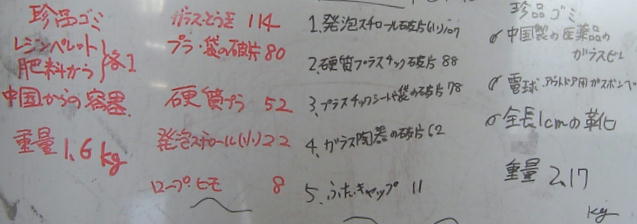 珍品ゴミ
レジンペレット
肥料から 各1
中国からの容器
重量 1.6kg
ガラス・とう器 114
プラ・袋の破片 80
硬質プラ 52
発泡スチロール(小) 22
ロープ・ヒモ 8
1. 発泡スチロール破片(小) 107
2. 硬質プラスチック破片 88
3. プラスチックシートや袋の破片 78
4. ガラス陶器の破片 62
5. ふた・キャップ 11
珍品ゴミ
中国製の医薬品の
ガラスビン
電球・アウトドア用ガスボンベ
全長1cmの靴
重量 2.17
kg